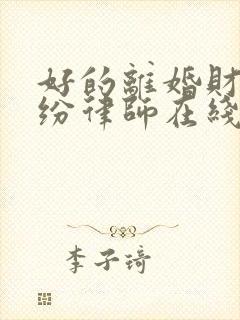 好的離婚財
纷律師在綫
李子琦